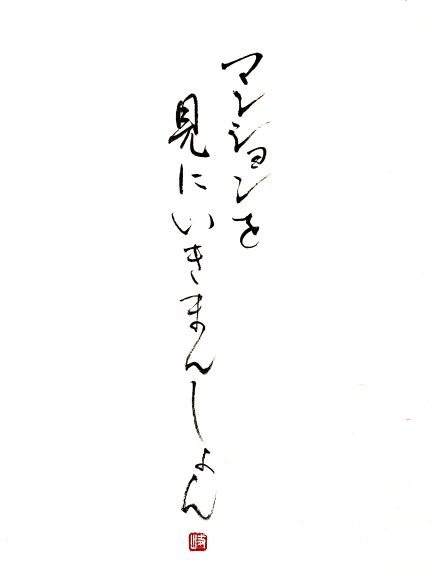 マンションを
見にいきまんしょん